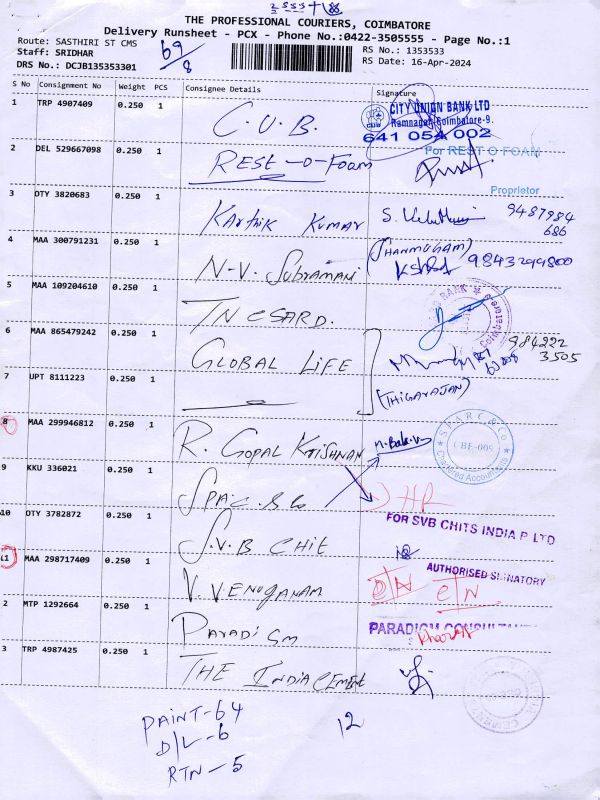 THE PROFESSIONAL COURIERS, COIMBATORE
Delivery Runsheet - PCX - Phone No.:0422-3505555 - Page No.:1
Route: SASTHIRI ST CMS
Staff: SRIDHAR
DRS No.: DCJB135353301
69/8
RS No.: 1353533
RS Date: 16-Apr-2024
S No Consignment No Weight PCS Consignee Details Signature
1 TRP 4907409 0.250 1 C.U.B.
CITY UNION BANK LTD
Ramnagar, Coimbatore-9.
641 054 002
2 DEL 529667098 0.250 1 REST-O-FOAM
For REST O FOAM
Proprietor
3 DTY 3820683 0.250 1 KARTHIK KUMAR 9487984
686
4 MAA 300791231 0.250 1 N.V. SUBRAMANI
(SHANMUGAM)
9843299800
5 MAA 109204610 0.250 1 TNCSARD.
6 MAA 865479242 0.250 1 GLOBAL LIFE
984222
3505
7 UPT 8111223 0.250 1
(THIGARAJAN)
8 MAA 299946812 0.250 1 R. GOPAL KRISHNAN
SPARC & CO
CBE-009
Chartered Accountants
9 KKU 336021 0.250 1 SPAC & Co
10 DTY 3782872 0.250 1 S.V.B CHIT
FOR SVB CHITS INDIA P LTD
AUTHORISED SIGNATORY
11 MAA 298717409 0.250 1 V. VENUGANAM
D/N
2 MTP 1292664 0.250 1 PARADISM
PARADIGM CONSULTANT
3 TRP 4987425 0.250 1 THE INDIA CEMENT
PAINT-64
D/L-6
RTN-5
12